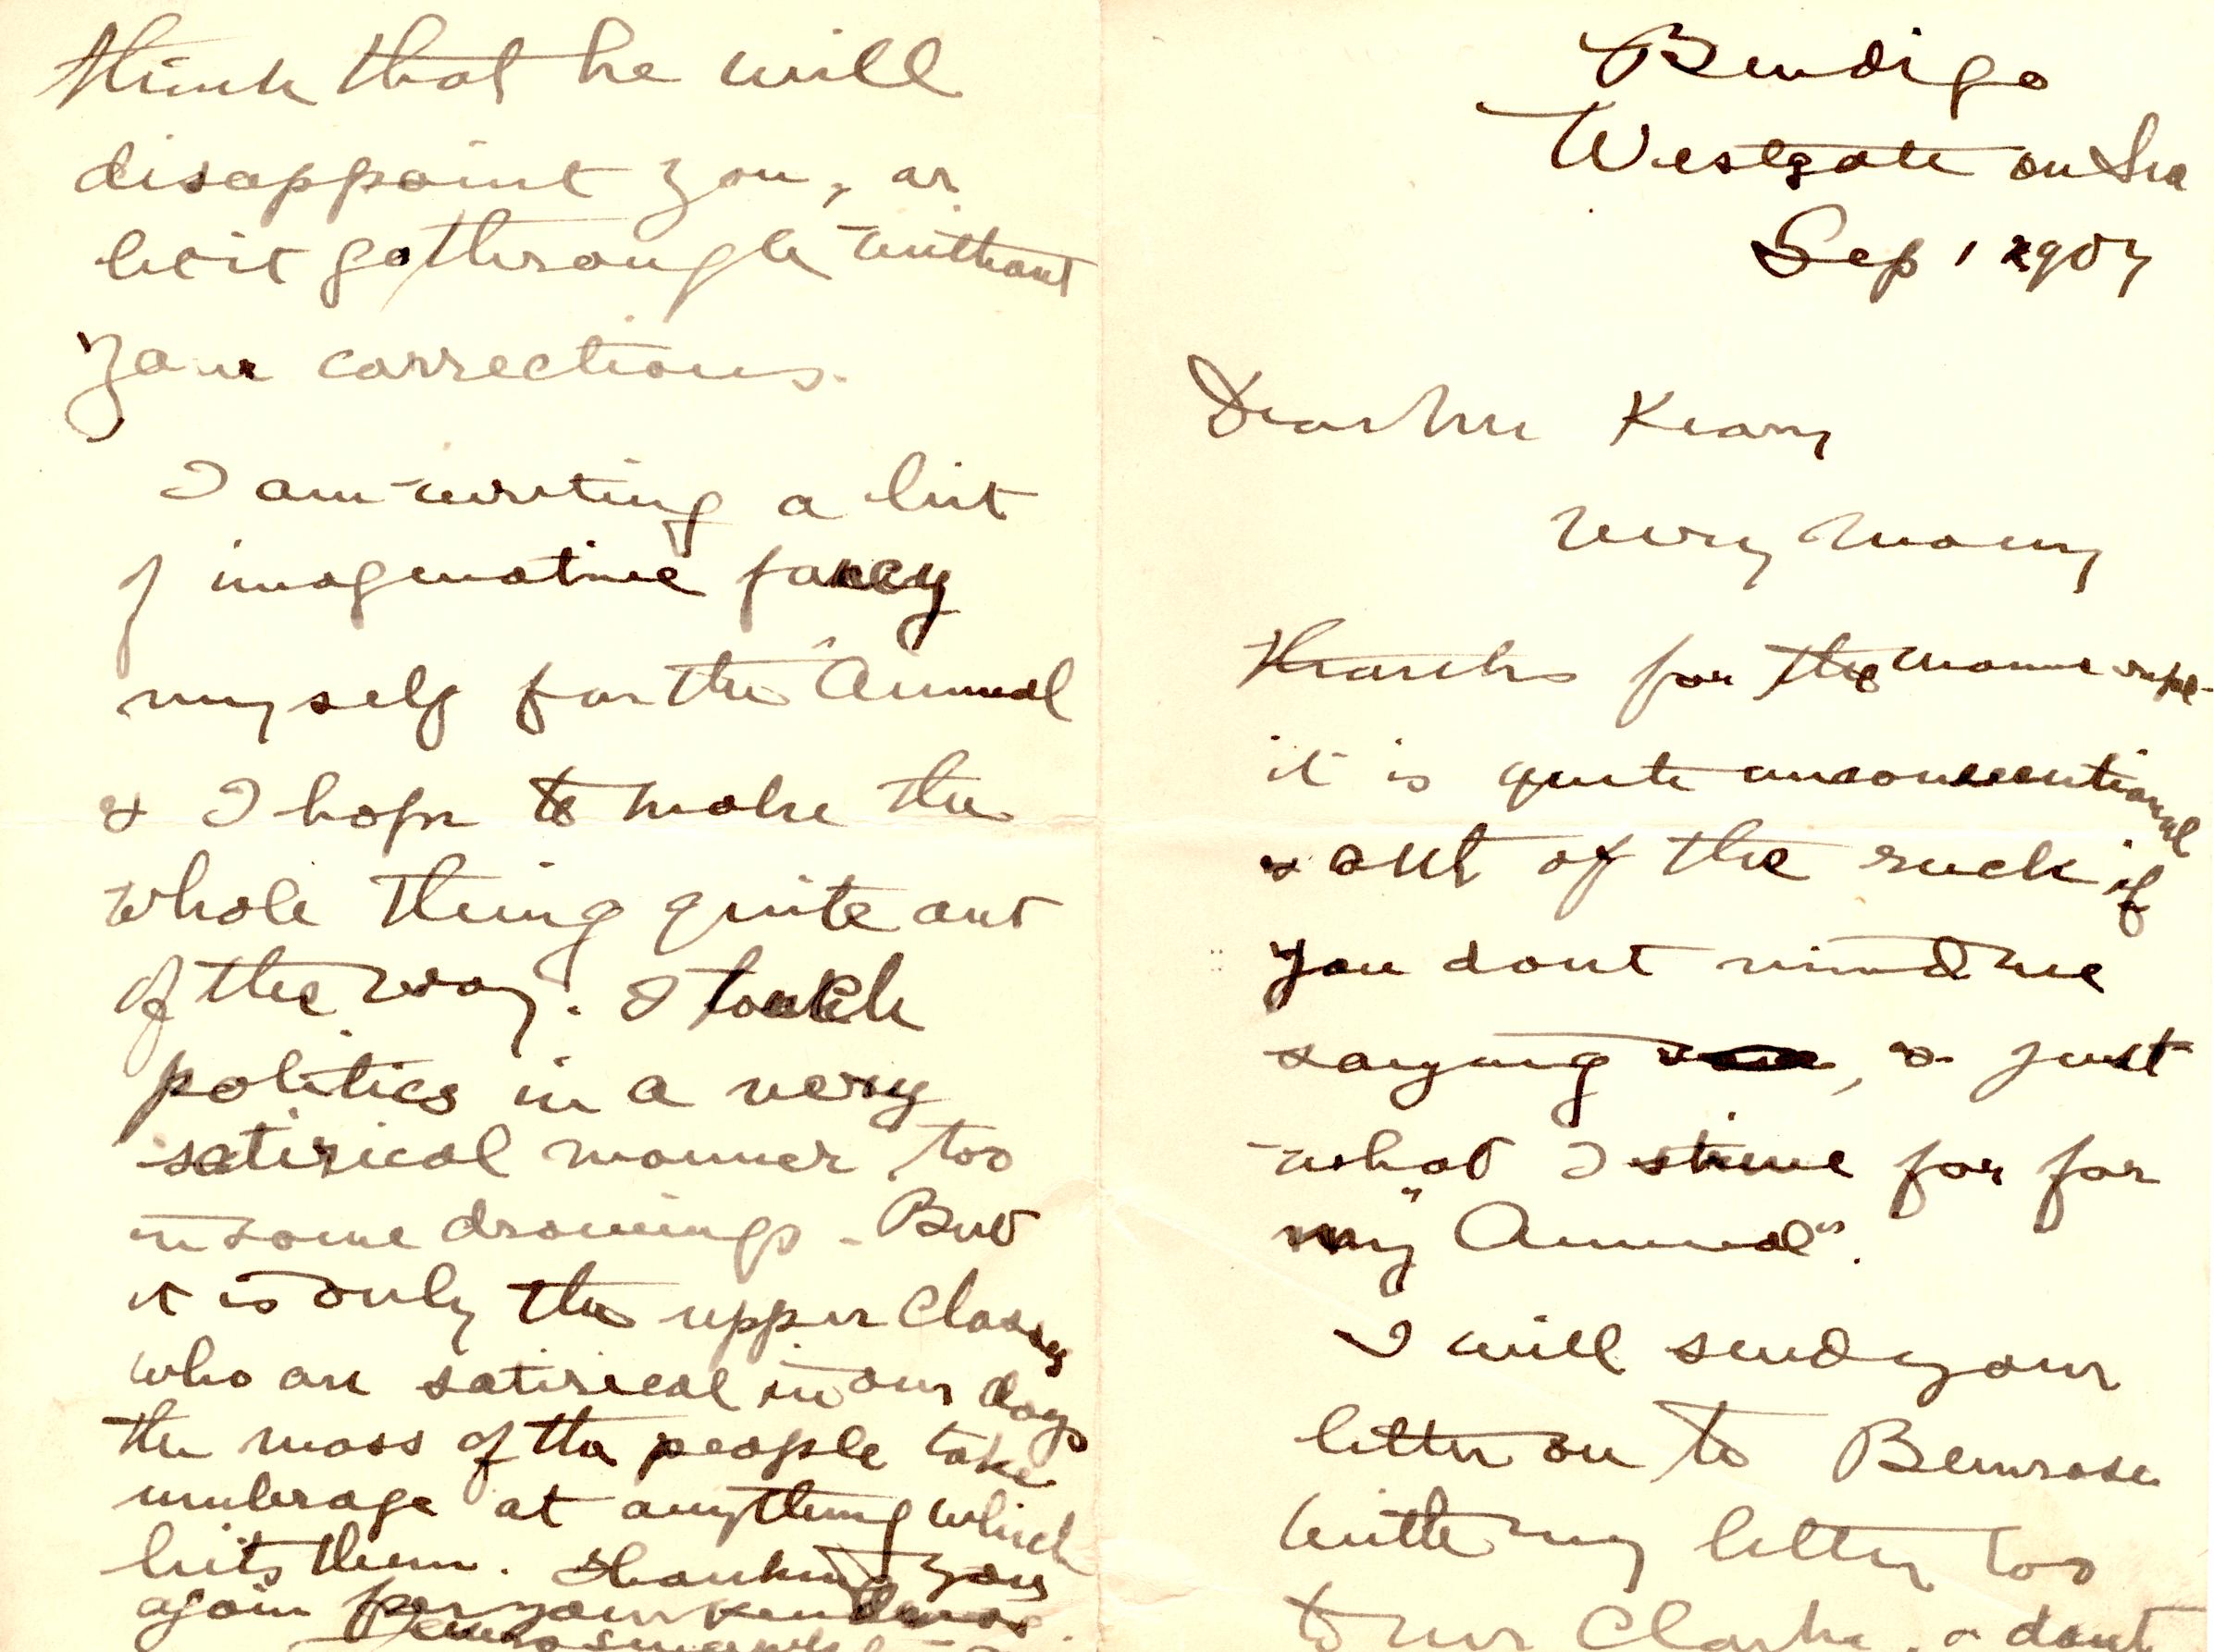 Bendigo
Westgate on Sea
Sep 1 1907
Dear Mr Keary
Very many
thanks for the manuscript
it is quite unconventional
& out of the ruck if
you dont mind me
saying , & just
what I strive for for
my "Annual".
I will send your
letter on to Bemrose
with my letter too
to Mr Clarke, & dont
think that he will
disappoint you, or
let it go through without
your corrections.
I am writing a bit
of imaginative fancy
myself for the "Annual
& I hope to make the
whole thing quite out
of the way. I touch
politics in a very
satirical manner too
in some drawings - But
it is only the upper classes
who are satirical in our days
the mass of the people take
umbrage at anything which
hits them. Thanking you
again for your kindness.